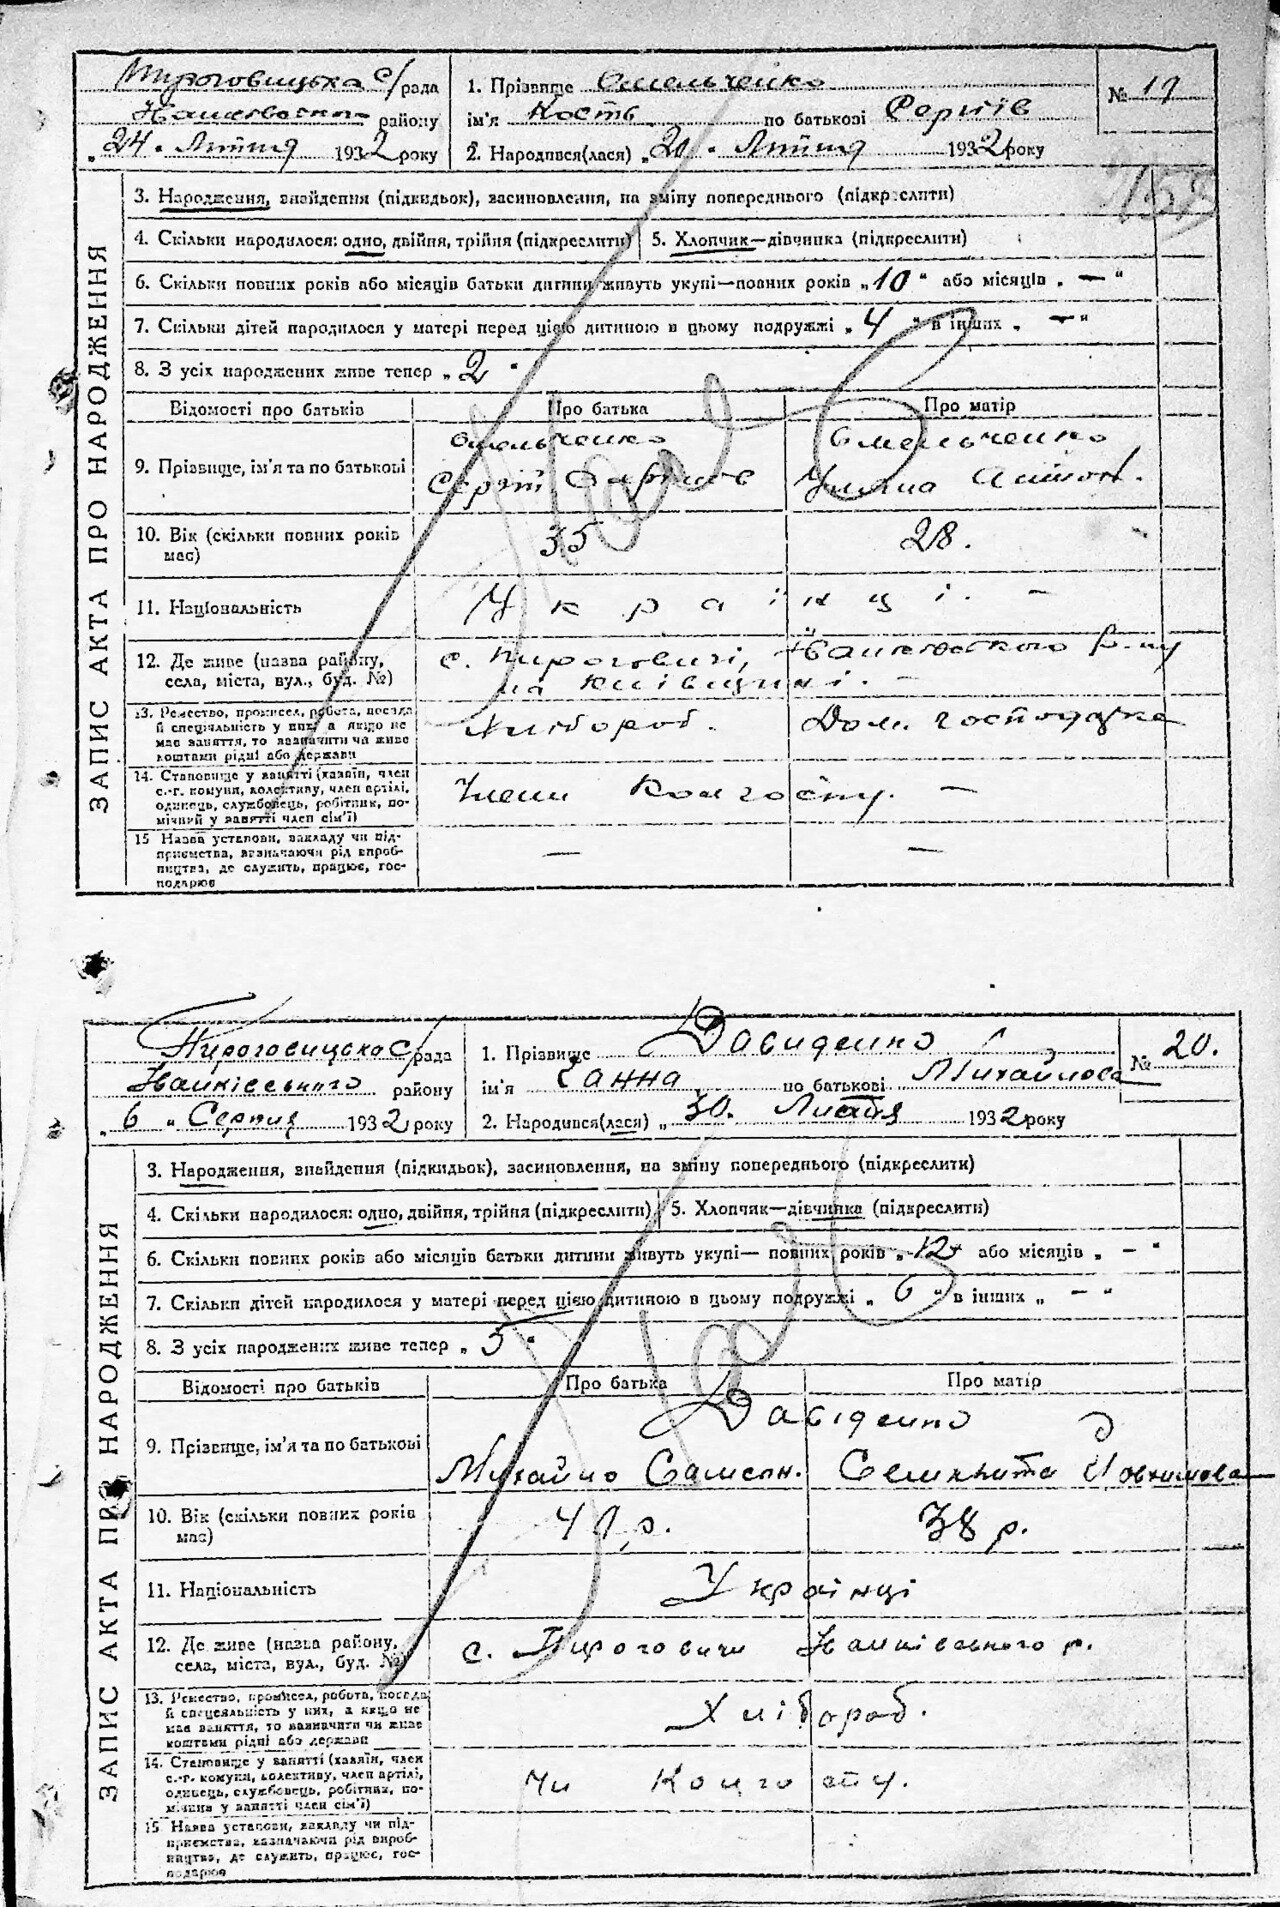 Пироговицька с/рада
Іванківського району
"24" Липня 1932 року
1. Прізвище Омельченко
ім'я Кость по батькові Сергіїв
2. Народився(лася) "21" Липня 1932 року
№ 19
ЗАПИС АКТА ПРО НАРОДЖЕННЯ
3. Народження, знайдення (підкидьок), засиновлення, на зміну попереднього (підкреслити)
4. Скільки народилося: одно, двійня, трійня (підкреслити) 5. Хлопчик—дівчинка (підкреслити)
6. Скільки повних років або місяців батьки дитини живуть укупі—повних років „10" або місяців „—"
7. Скільки дітей народилося у матері перед цією дитиною в цьому подружжі „4" в інших „—"
8. З усіх народжених живе тепер „2"
Відомості про батьків Про батька Про матір
9. Прізвище, ім'я та по батькові
Омельченко Омельченко
Сергій Уляна
10. Вік (скільки повних років має) 35 28.
11. Національність Українці. –
12. Де живе (назва району, села, міста, вул., буд. №)
с. Пироговичі, Іванківського р-ну
на Київщині. –
13. Ремество, промисел, робота, посада
й спеціяльність у них, а якщо не
має заняття, то зазначити чи живе
коштами рідні або держави
Хлібороб. Дом. господарка
14. Становище у занятті (хазяїн, член
с.-г. комуни, колективу, член артілі,
одинець, службовець, робітник, по-
мічний у занятті член сім'ї)
Члени Колгоспу. –
15 Назва установи, закладу чи під-
приємства, зазначаючи рід вироб-
ництва, де служить, працює, гос-
подарює
— —
Пироговицька с/рада
Іванківського району
"6" Серпня 1932 року
1. Прізвище Давиденко
ім'я Ганна по батькові Михайлова
2. Народився(лася) „30. Липня 1932 року
№ 20.
ЗАПИС АКТА ПРО НАРОДЖЕННЯ
3. Народження, знайдення (підкидьок), засиновлення, на зміну попереднього (підкреслити)
4. Скільки народилося: одно, двійня, трійня (підкреслити) 5. Хлопчик—дівчинка (підкреслити)
6. Скільки повних років або місяців батьки дитини живуть укупі— повних років „12" або місяців „—"
7. Скільки дітей народилося у матері перед цією дитиною в цьому подружжі „6" в інших „—"
8. З усіх народжених живе тепер „5"
Відомості про батьків Про батька Про матір
9. Прізвище, ім'я та по батькові
Давіденко
Михайло Самсон.
10. Вік (скільки повних років має) 41 р. 38 р.
11. Національність Українці
12. Де живе (назва району, села, міста, вул., буд. №)
с. Пироговичи Іванківського р.
13. Ремество, промисел, робота, посада
й спеціяльність у них, а якщо не
має заняття, то зазначити чи живе
коштами рідні або держави
Хлібороб.
14. Становище у занятті (хазяїн, член
с.-г. комуни, колективу, член артілі,
одинець, службовець, робітник, по-
мічний у занятті член сім'ї)
Чл Колгоспу.
15 Назва установи, закладу чи під-
приємства, зазначаючи рід вироб-
ництва, де служить, працює, гос-
подарює